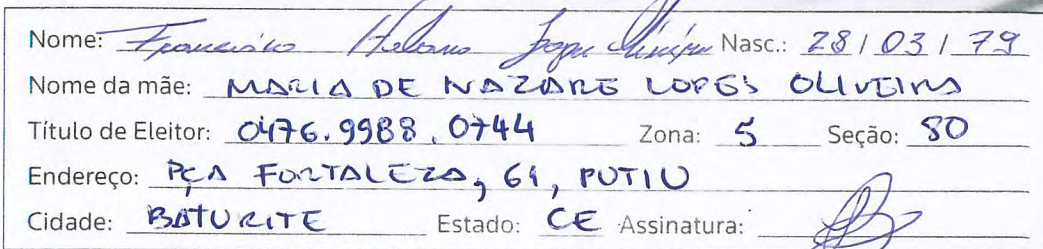 Nome: Francisco Helano Lopes Nasc.: 28/03/79
Nome da mãe: MARIA DE NAZARE LOPES OLIVEIRA
Título de Eleitor: 0476.9988.0744 Zona: 5 Seção: 80
Endereço: PÇA FORTALEZA, 61, PUTIU
Cidade: BATURITE Estado: CE Assinatura: